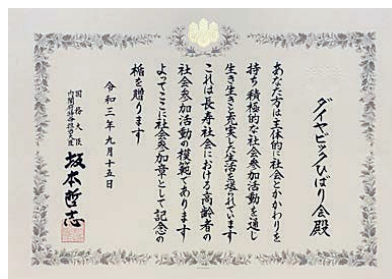 ダイヤビックひばり会殿
あなた方は主体的に社会とかかわりを
持ち積極的な社会参加活動を通じ
生き生きと充実した生活を送られています
これは長寿社会における高齢者の
社会参加活動の模範であります
よってここに社会参加章として記念の
楯を贈ります
令和三年九月十五日
国務大臣
内閣府特命担当大臣
坂本哲志